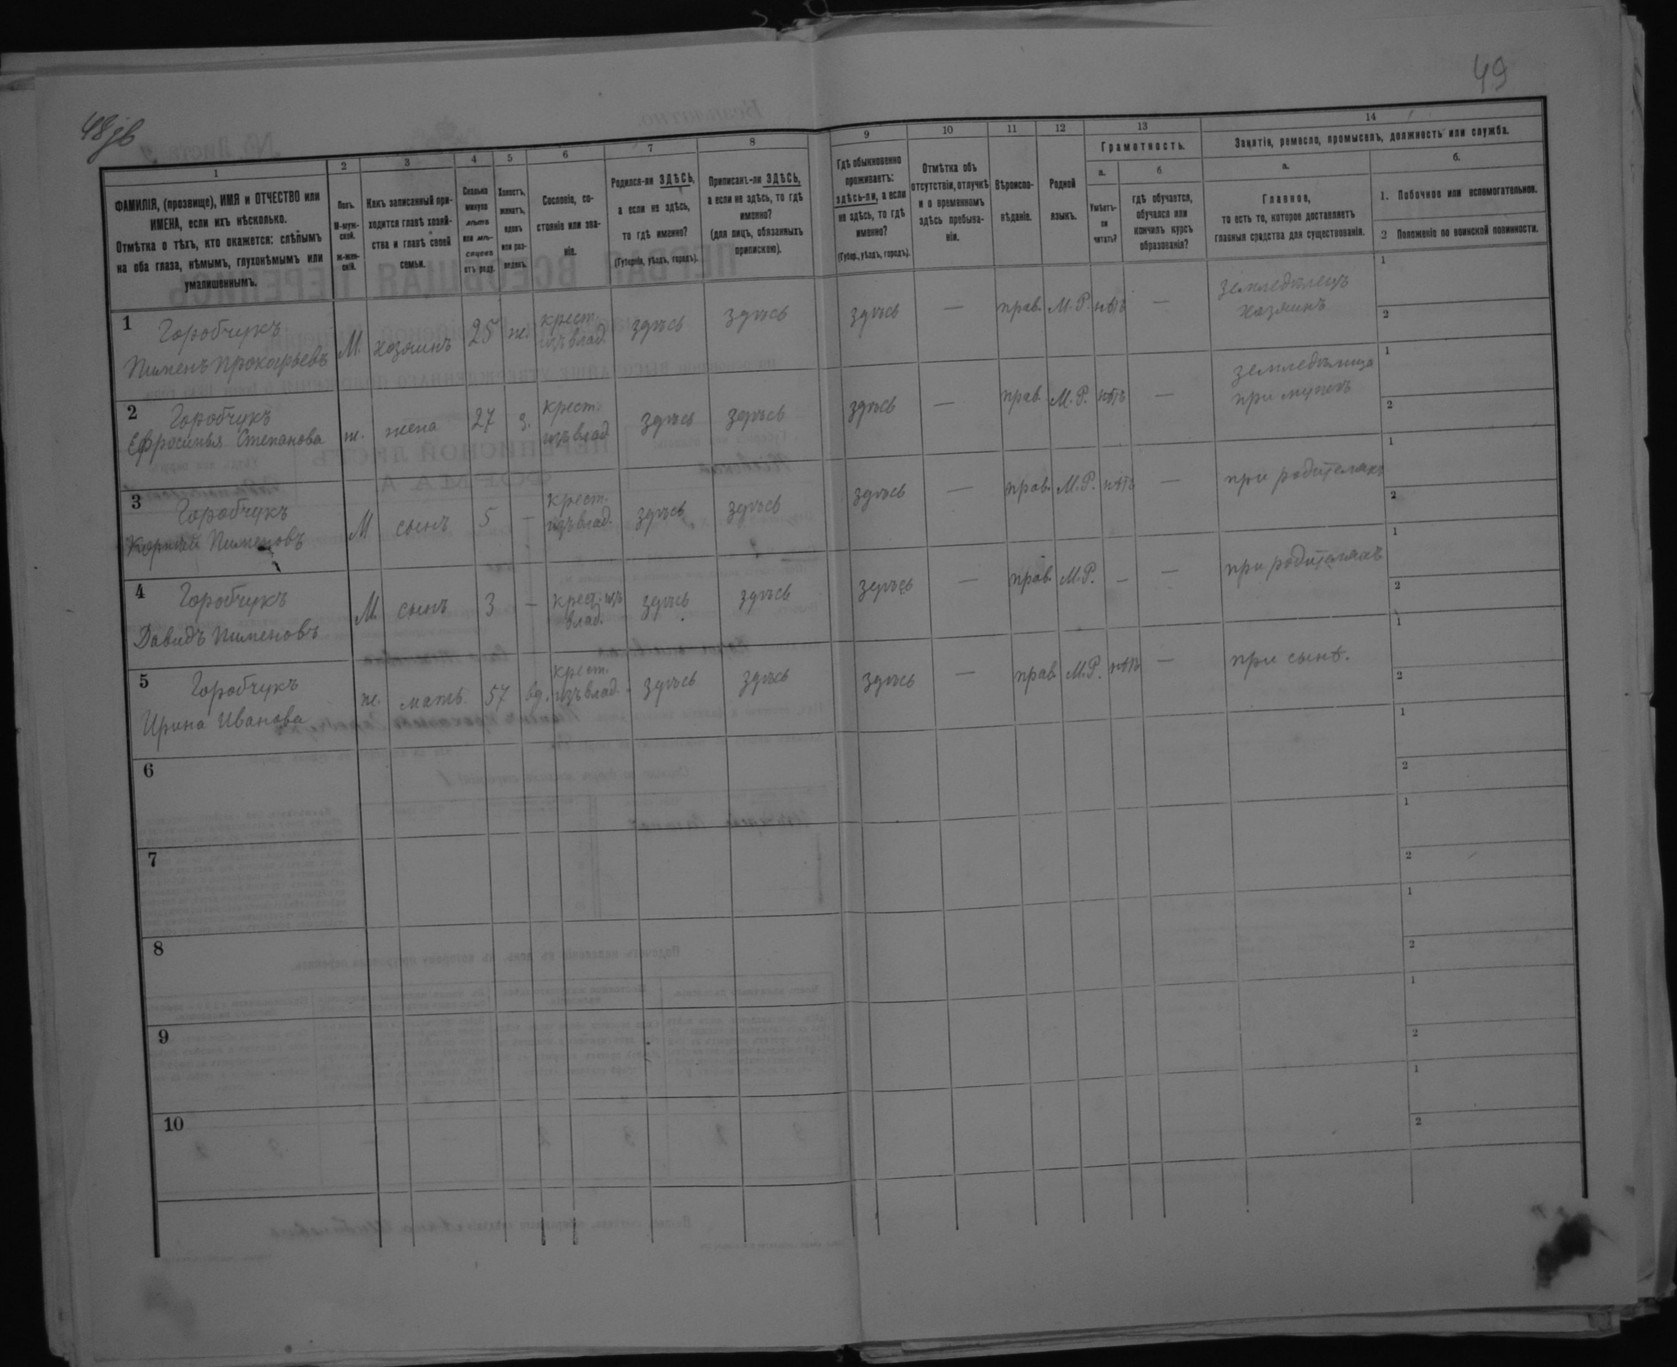 48зв
49
1
2
3
4
5
6
7
8
9
10
11
12
13
14
ФАМИЛІЯ, (прозвище), ИМЯ и ОТЧЕСТВО или
ИМЕНА, если ихъ нѣсколько.
Отмѣтка о тѣхъ, кто окажется: слѣпымъ
на оба глаза, нѣмымъ, глухонѣмымъ или
умалишеннымъ.
Полъ.
М-муж-
ской.
Ж-жен-
скій.
Какъ записанный при-
ходится главѣ хозяй-
ства и главѣ своей
семьи.
Сколько
минуло
лѣтъ
или мѣ-
сяцевъ
отъ роду.
Холостъ,
женатъ,
вдовъ
или раз-
веденъ.
Сословіе, со-
стояніе или зва-
ніе.
Родился-ли ЗДѢСЬ,
а если не здѣсь,
то гдѣ именно?
(Губернія, уѣздъ, городъ).
Приписанъ-ли ЗДѢСЬ,
а если не здѣсь, то гдѣ
именно?
(для лицъ, обязанныхъ
припискою).
Гдѣ обыкновенно
проживаетъ:
здѣсь-ли, а если
не здѣсь, то гдѣ
именно?
(Губер., уѣздъ, городъ).
Отмѣтка объ
отсутствіи, отлучкѣ
и о временномъ
здѣсь пребыва-
ніи.
Вѣроиспо-
вѣданіе.
Родной
языкъ.
Грамотность.
а.
Умѣетъ-
ли
читать?
б
гдѣ обучается,
обучался или
кончилъ курсъ
образованія?
Занятіе, ремесло, промыселъ, должность или служба.
а.
Главное,
то есть то, которое доставляетъ
главныя средства для существованія.
б.
1. Побочное или вспомогательное.
2 Положеніе по воинской повинности.
1 Горобчукъ
Пименъ Прокофьевъ М. хозяинъ 25 ж. крест. изъ влад. здѣсь здѣсь здѣсь — прав. М.Р. нѣтъ — земледѣлецъ хозяинъ 1 2
2 Горобчукъ
Ефросинья Степанова ж. жена 27 з. крест. изъ влад здѣсь здѣсь здѣсь — прав. М.Р. нѣтъ — земледѣлица при мужѣ 1 2
3 Горобчукъ
Корній Пименовъ М сынъ 5 — крест. изъ влад. здѣсь здѣсь здѣсь — прав. М.Р. нѣтъ — при родителяхъ 1 2
4 Горобчукъ
Давидъ Пименовъ М. сынъ 3 — крест. изъ влад. здѣсь здѣсь здѣсь — прав. М.Р. — — при родителяхъ 1 2
5 Горобчукъ
Ирина Иванова ж. мать 57 вд. крест. изъ влад. здѣсь здѣсь здѣсь — прав. М.Р. нѣтъ — при сынѣ. 1 2
6 1 2
7 1 2
8 1 2
9 1 2
10 1 2